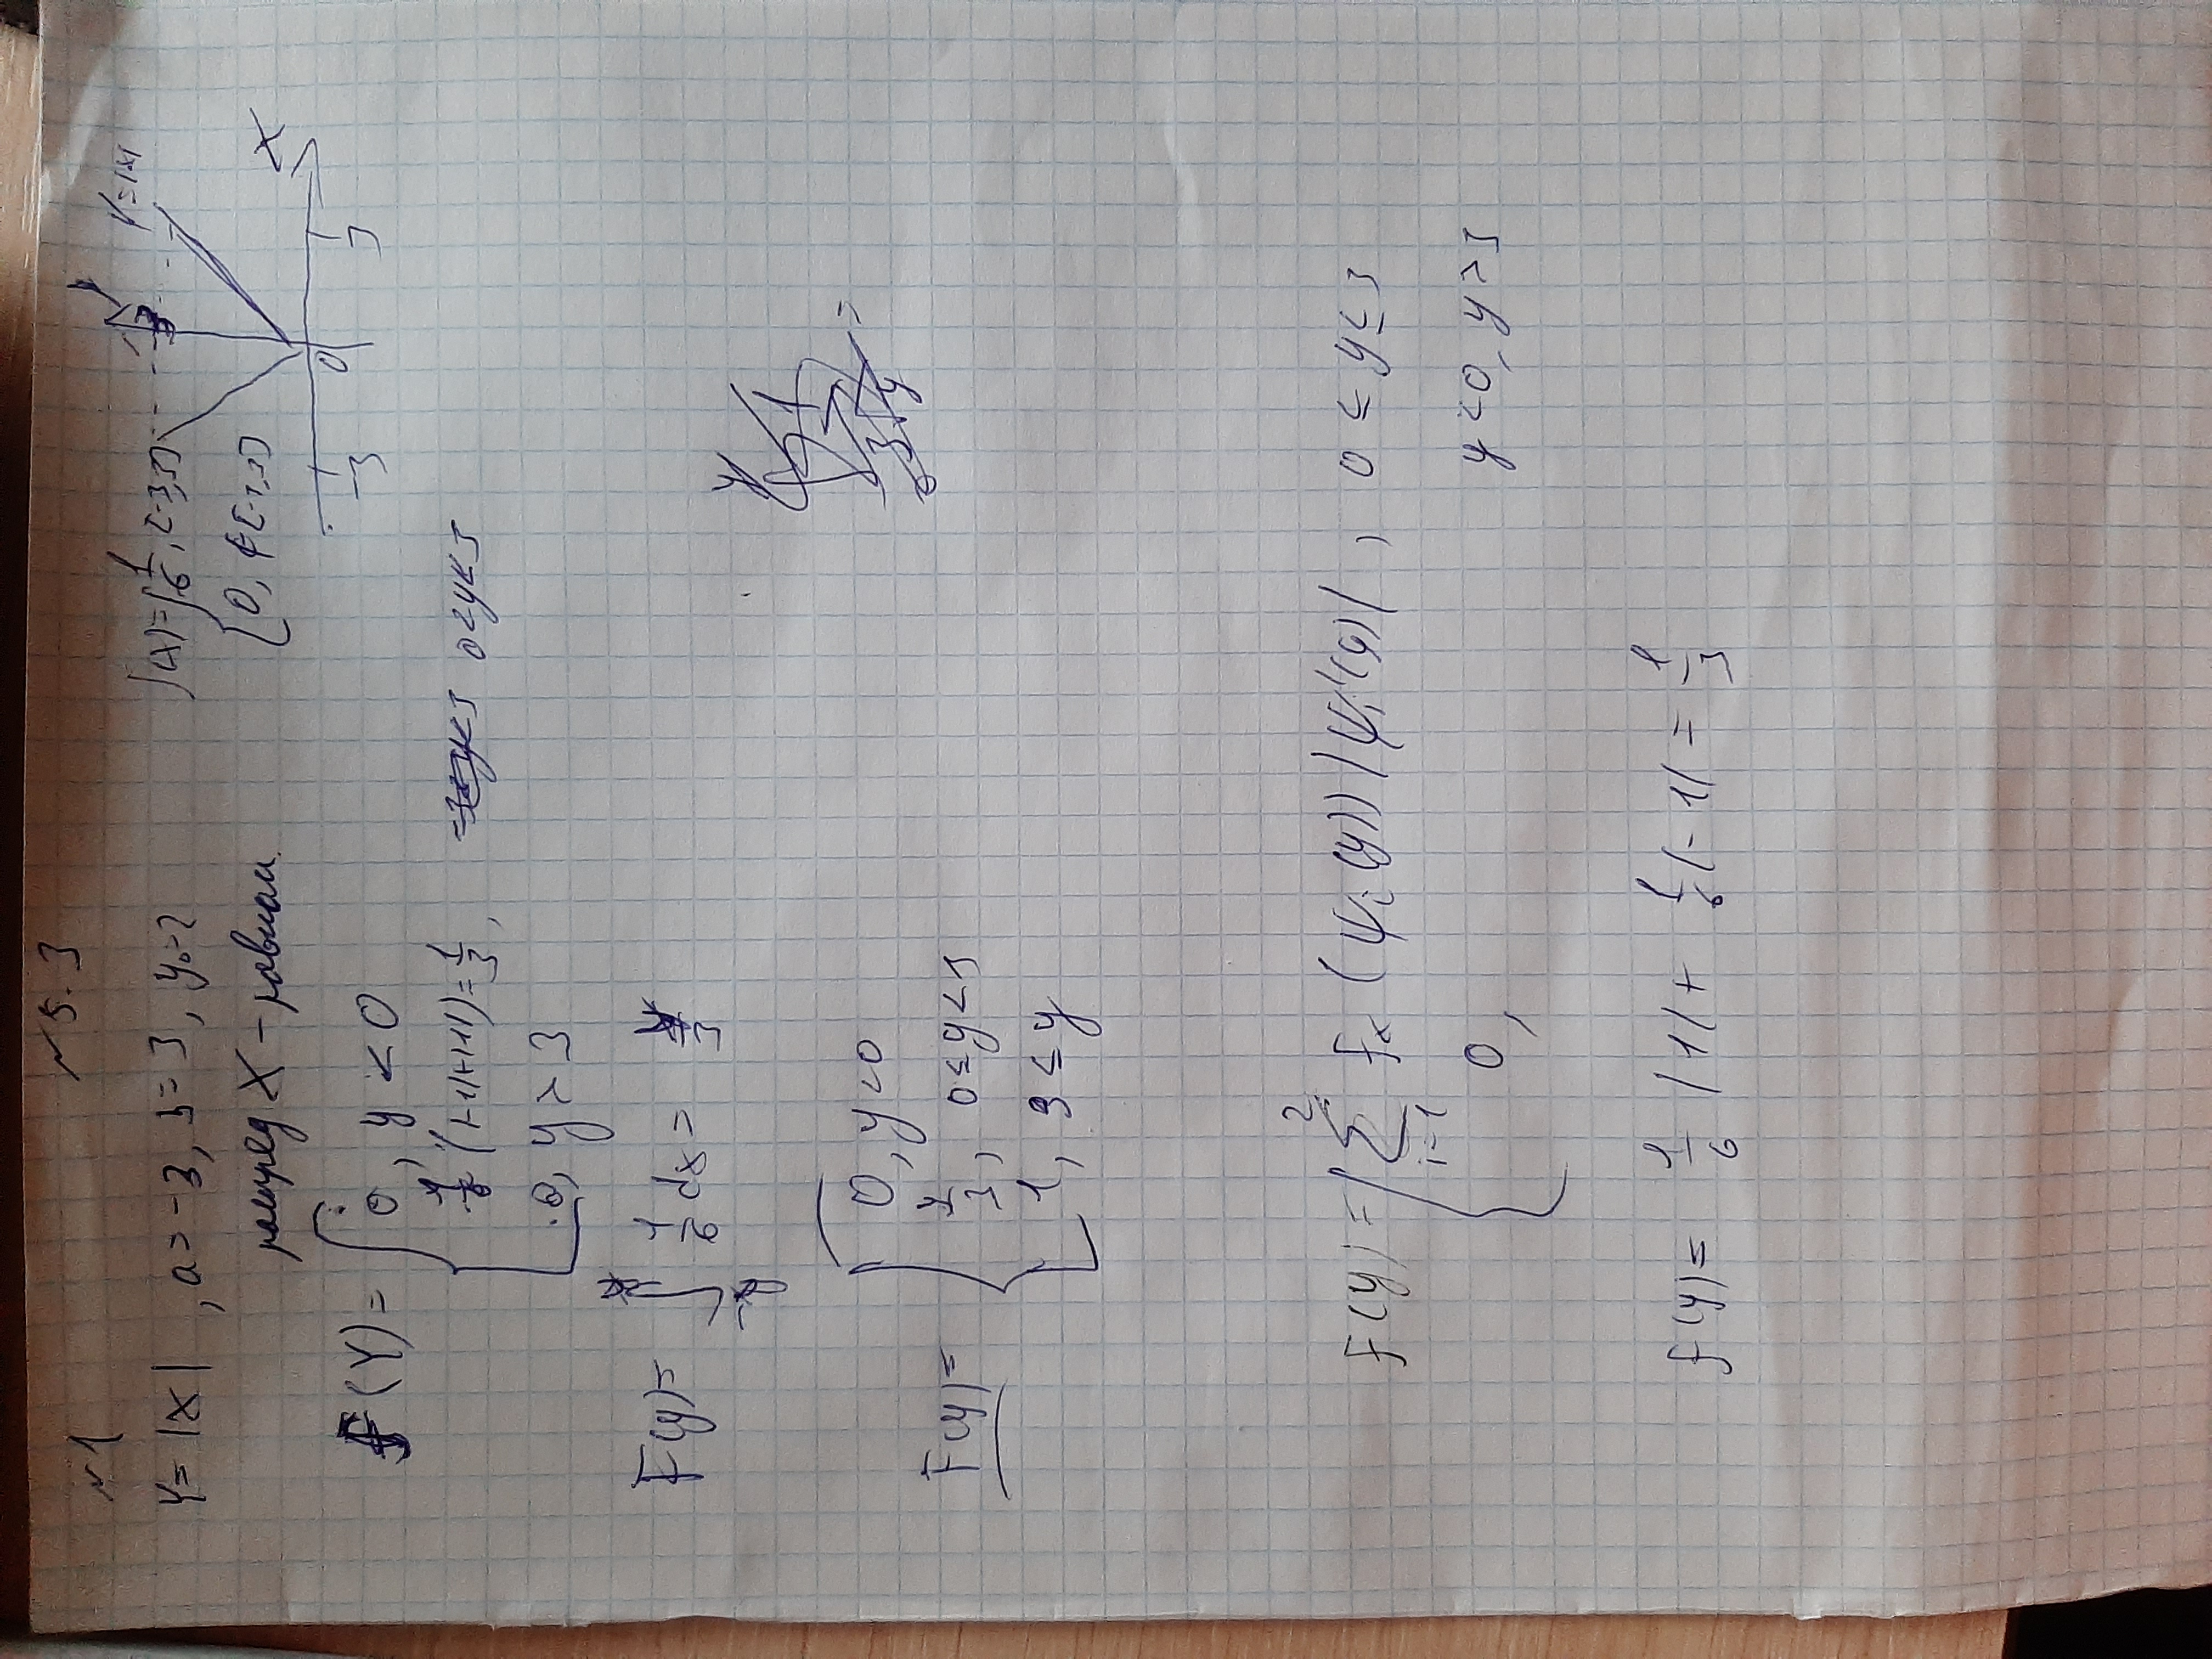 №5.3
№1
Y = |X|, a = -3, b = 3, y₀ = 2
распред X - равном.
f(x) = { 1/6, [-3,3]
0, ∉[-3,3]
Y
Y=|X|
3
X
-3 0 3
f(Y) = { 0, y < 0
1/6 (|-1|+|1|) = 1/3, 0<y<3
0, y > 3
F(y) = ∫ 1/6 dx = y/3
F(y) = { 0, y<0
y/3, 0≤y<3
1, 3≤y
f(y) = { ∑ i=1 2 fx (ψi(y)) |ψi'(y)|, 0 ≤ y ≤ 3
0, y<0, y>3
f(y) = 1/6 |1| + 1/6 |-1| = 1/3